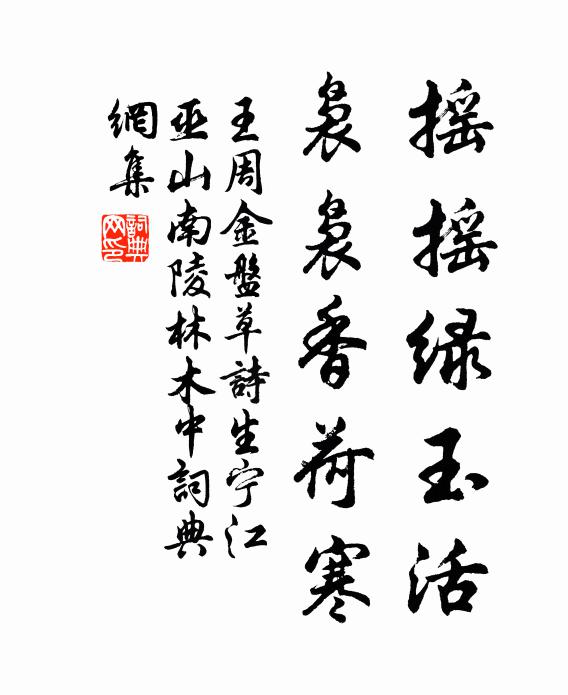 摇摇绿玉活
袅袅香荷寒
王周金盤草詩生宁江
巫山南陵林木中詞典
網集
詞典网印